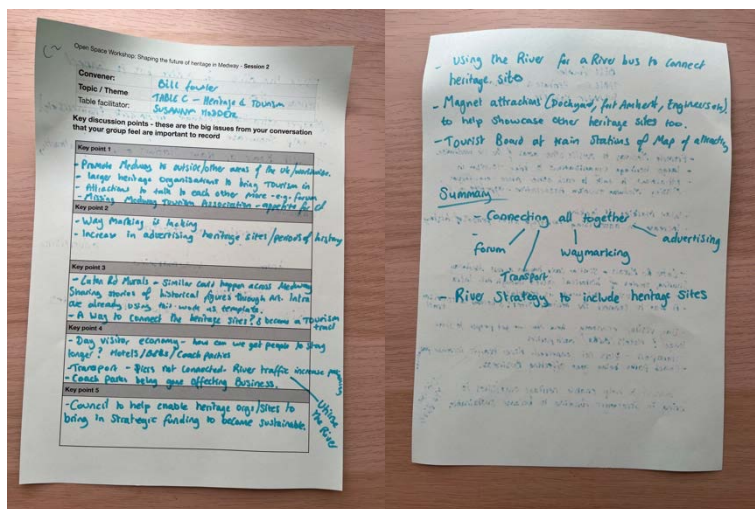 C~
Open Space Workshop: Shaping the future of heritage in Medway - Session 2
Convener:
Bill Fowler
Topic / Theme
TABLE C - Heritage & Tourism
Table facilitator:
SUSANNA HODDER
Key discussion points - these are the big issues from your conversation
that your group feel are important to record
Key point 1
- Promote Medway to outside/other areas of the UK/worldwide.
- larger heritage organisations to bring Tourism in
- Attractions to talk to each other more - e.g. forum
- Missing Medway Tourism Association - appetite for it
Key point 2
- Way marking is lacking
- Increase in advertising heritage sites/periods of history
Key point 3
- Luton Rd Murals - Similar could happen across Medway
Sharing stories of historical figures through Art. Intra
are already using this work as template.
- A way to connect the heritage sites? & become a Tourism
Key point 4
- Day visitor economy - how can we get people to stay
longer? Hotels/B&Bs/Coach Parties
- Transport - Piers not connected. River traffic increase
- Coach parks being gone affecting Business.
Utilise
The River
Key point 5
- Council to help enable heritage orgs/sites to
bring in strategic funding to become sustainable.
- Using the River for a River bus to connect
heritage sites
- Magnet attractions (Dockyard, Fort Amherst, Engineers etc)
to help showcase other heritage sites too.
- Tourist Board at train stations of Map of attractions
Summary
- Connecting all together
forum
Transport
waymarking
advertising
- River Strategy to include heritage sites